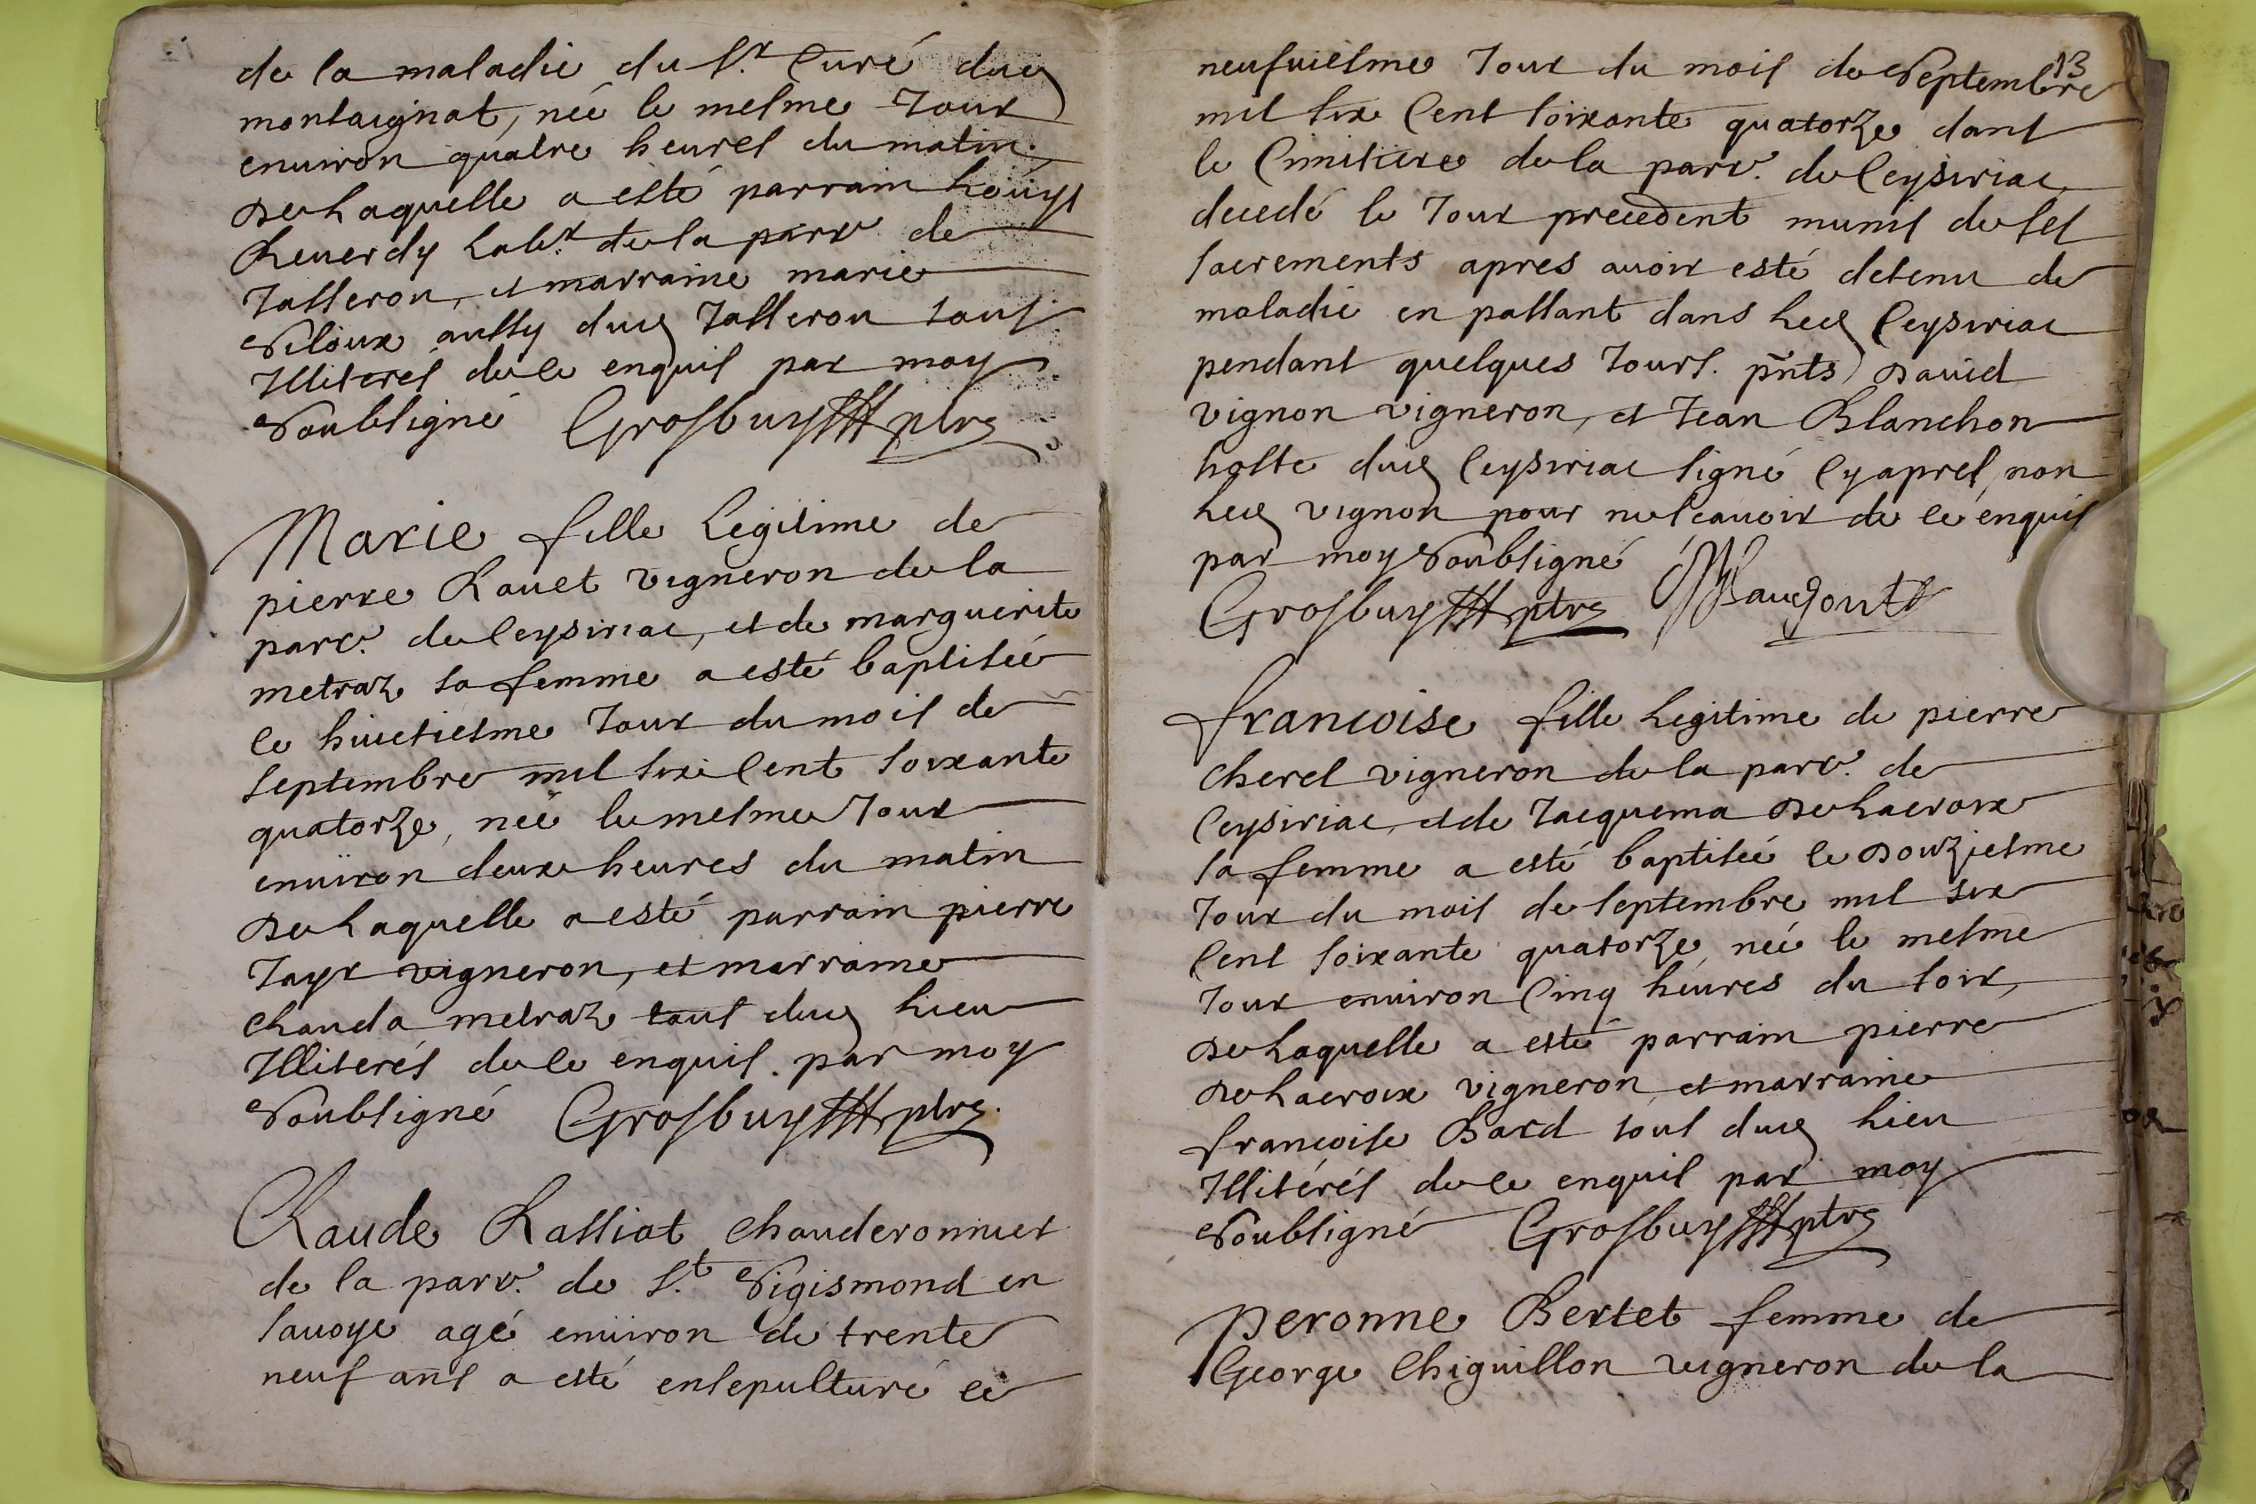 de la maladie du Sr. Curé dud
montaignat, née le mesme Jour
enuiron quatre heures du matin,
De Laquelle a esté parrain Loüys
Reuerdy Labr. de la parr de
Jasseron, et marraine marie
aussy dud Jasseron tous
Illiterés de ce enquis par moy
Soubsigné Grosbuys ptre
Marie fille Legitime de
pierre Rauet vigneron de la
parr. de Ceysiriac, et de marguerite
metraz sa femme a esté baptisée
le huictiesme Jour du mois de
septembre mil six Cent soixante
quatorze, née le mesme Jour
enuiron deux heures du matin
De Laquelle a esté parrain pierre
Jayr vigneron, et marraine
Clauda metraz tous dud Lieu
Illiterés de ce enquis par moy
Soubsigné Grosbuys ptre.
Claude Rassiat Chauderonnier
de la parr. de St. Sigismond en
sauoye agé enuiron de trente
neuf ans a esté ensepulturé le
13
neufuiesme Jour du mois de Septembre
mil six Cent soixante quatorze dans
le Cimitiere de la parr. de Ceysiriac
decedé le Jour precedent munis de ses
sacrements apres auoir esté detenu de
maladie en passant dans Led Ceysiriac
pendant quelques Jours. pñts David
vignon vigneron, et Jean Blanchon
hoste dud Ceysiriac signé Cyapres, non
Led vignon pour ne scauoir de ce enquis
par moy Soubsigné
Grosbuys ptre
francoise fille Legitime de pierre
Cherel vigneron de la parr. de
Ceysiriac, et de Jacquema De Lacroix
sa femme a esté baptisée le Douziesme
Jour du mois de septembre mil six
Cent soixante quatorze, née le mesme
Jour enuiron Cinq heures du soir,
De Laquelle a esté parrain pierre
De Lacroix vigneron, et marraine
francoise Bard tous dud Lieu
Illitérés de ce enquis par moy
Soubsigné Grosbuys ptre
Peronne Bertet femme de
George Chiguillon vigneron de la